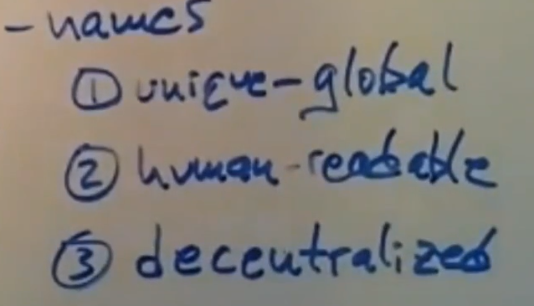 - names
① unique-global
② human-readable
③ decentralized